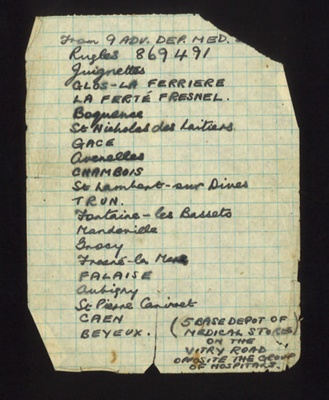 From 9 ADV. DEP. MED.
Rugles 869491
Juignettes
GLOS-LA FERRIERE
LA FERTÉ FRESNEL.
Boquence
St Nicholas des Laitiers
GACE
Avenelles
CHAMBOIS
St Lambert-sur Dives
TRUN.
Fontaine-les Bassets
Mandeville
Crocy
Fresné-la Mere
FALAISE
Aubigny
St Pierre Canivet
CAEN
BEYEUX.
(5 BASE DEPOT OF
MEDICAL STORES)
ON THE
VITRY ROAD
OPPOSITE THE GROUP
OF HOSPITALS.